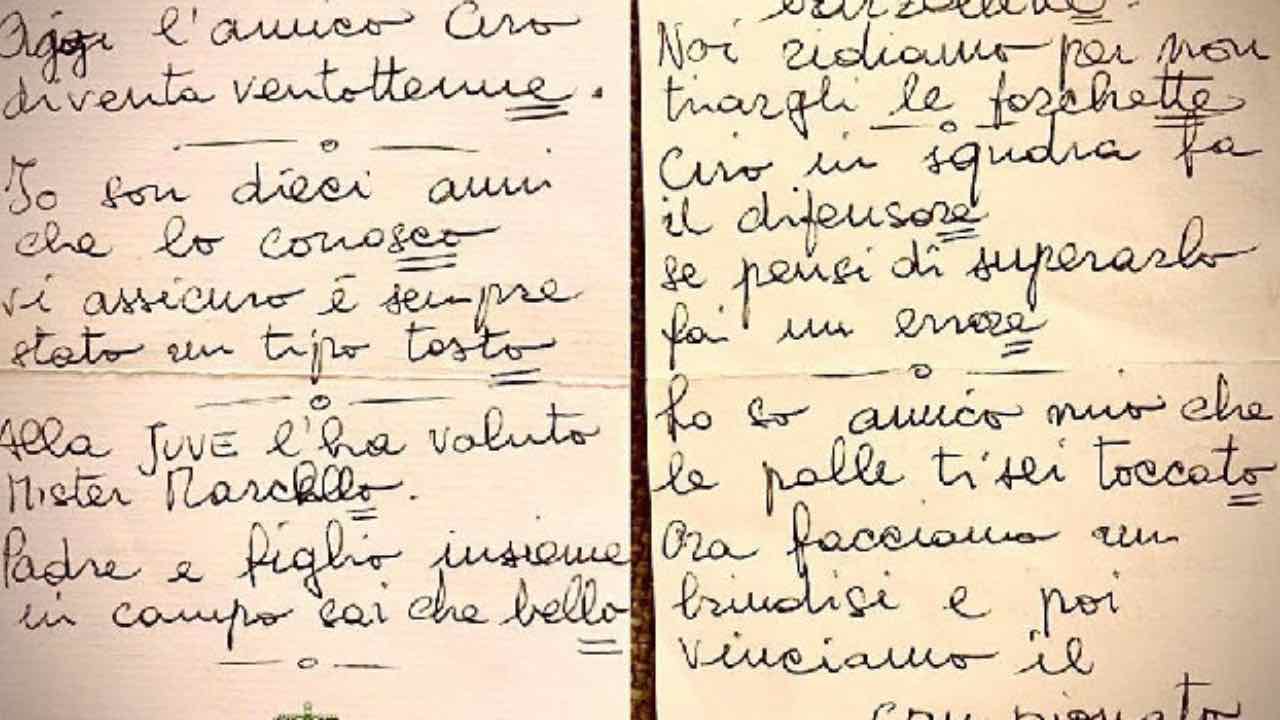 Oggi l'amico Ciro
diventa ventottenne.
Io son dieci anni
che lo conosco
vi assicuro è sempre
stato un tipo tosto
Alla JUVE l'ha voluto
Mister Marcello.
Padre e figlio insieme
in campo sai che bello
Noi ridiamo per non
tirargli le forchette
Ciro in squadra fa
il difensore
se pensi di superarlo
fai un errore
Lo so amico mio che
le palle ti sei toccato
Ora facciamo un
brindisi e poi
vinciamo il
campionato